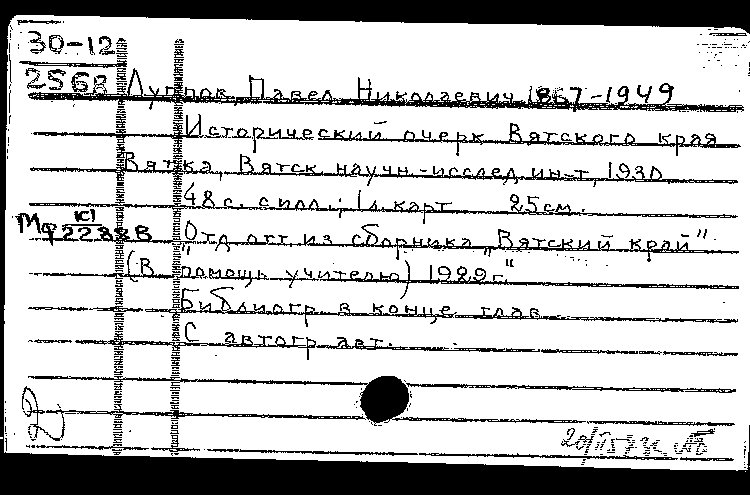 30-12
2568
Луппов, Павел Николаевич, 1867-1949
Исторический очерк Вятского края
Вятка, Вятск. научн.-исслед. ин-т, 1930
48 с. с илл.; 1 л. карт 25 см.
Отд. отт. из сборника "Вятский край"
(В "помощь учителю) 1929 г."
Библиогр. в конце глав.
С автогр. авт.
2